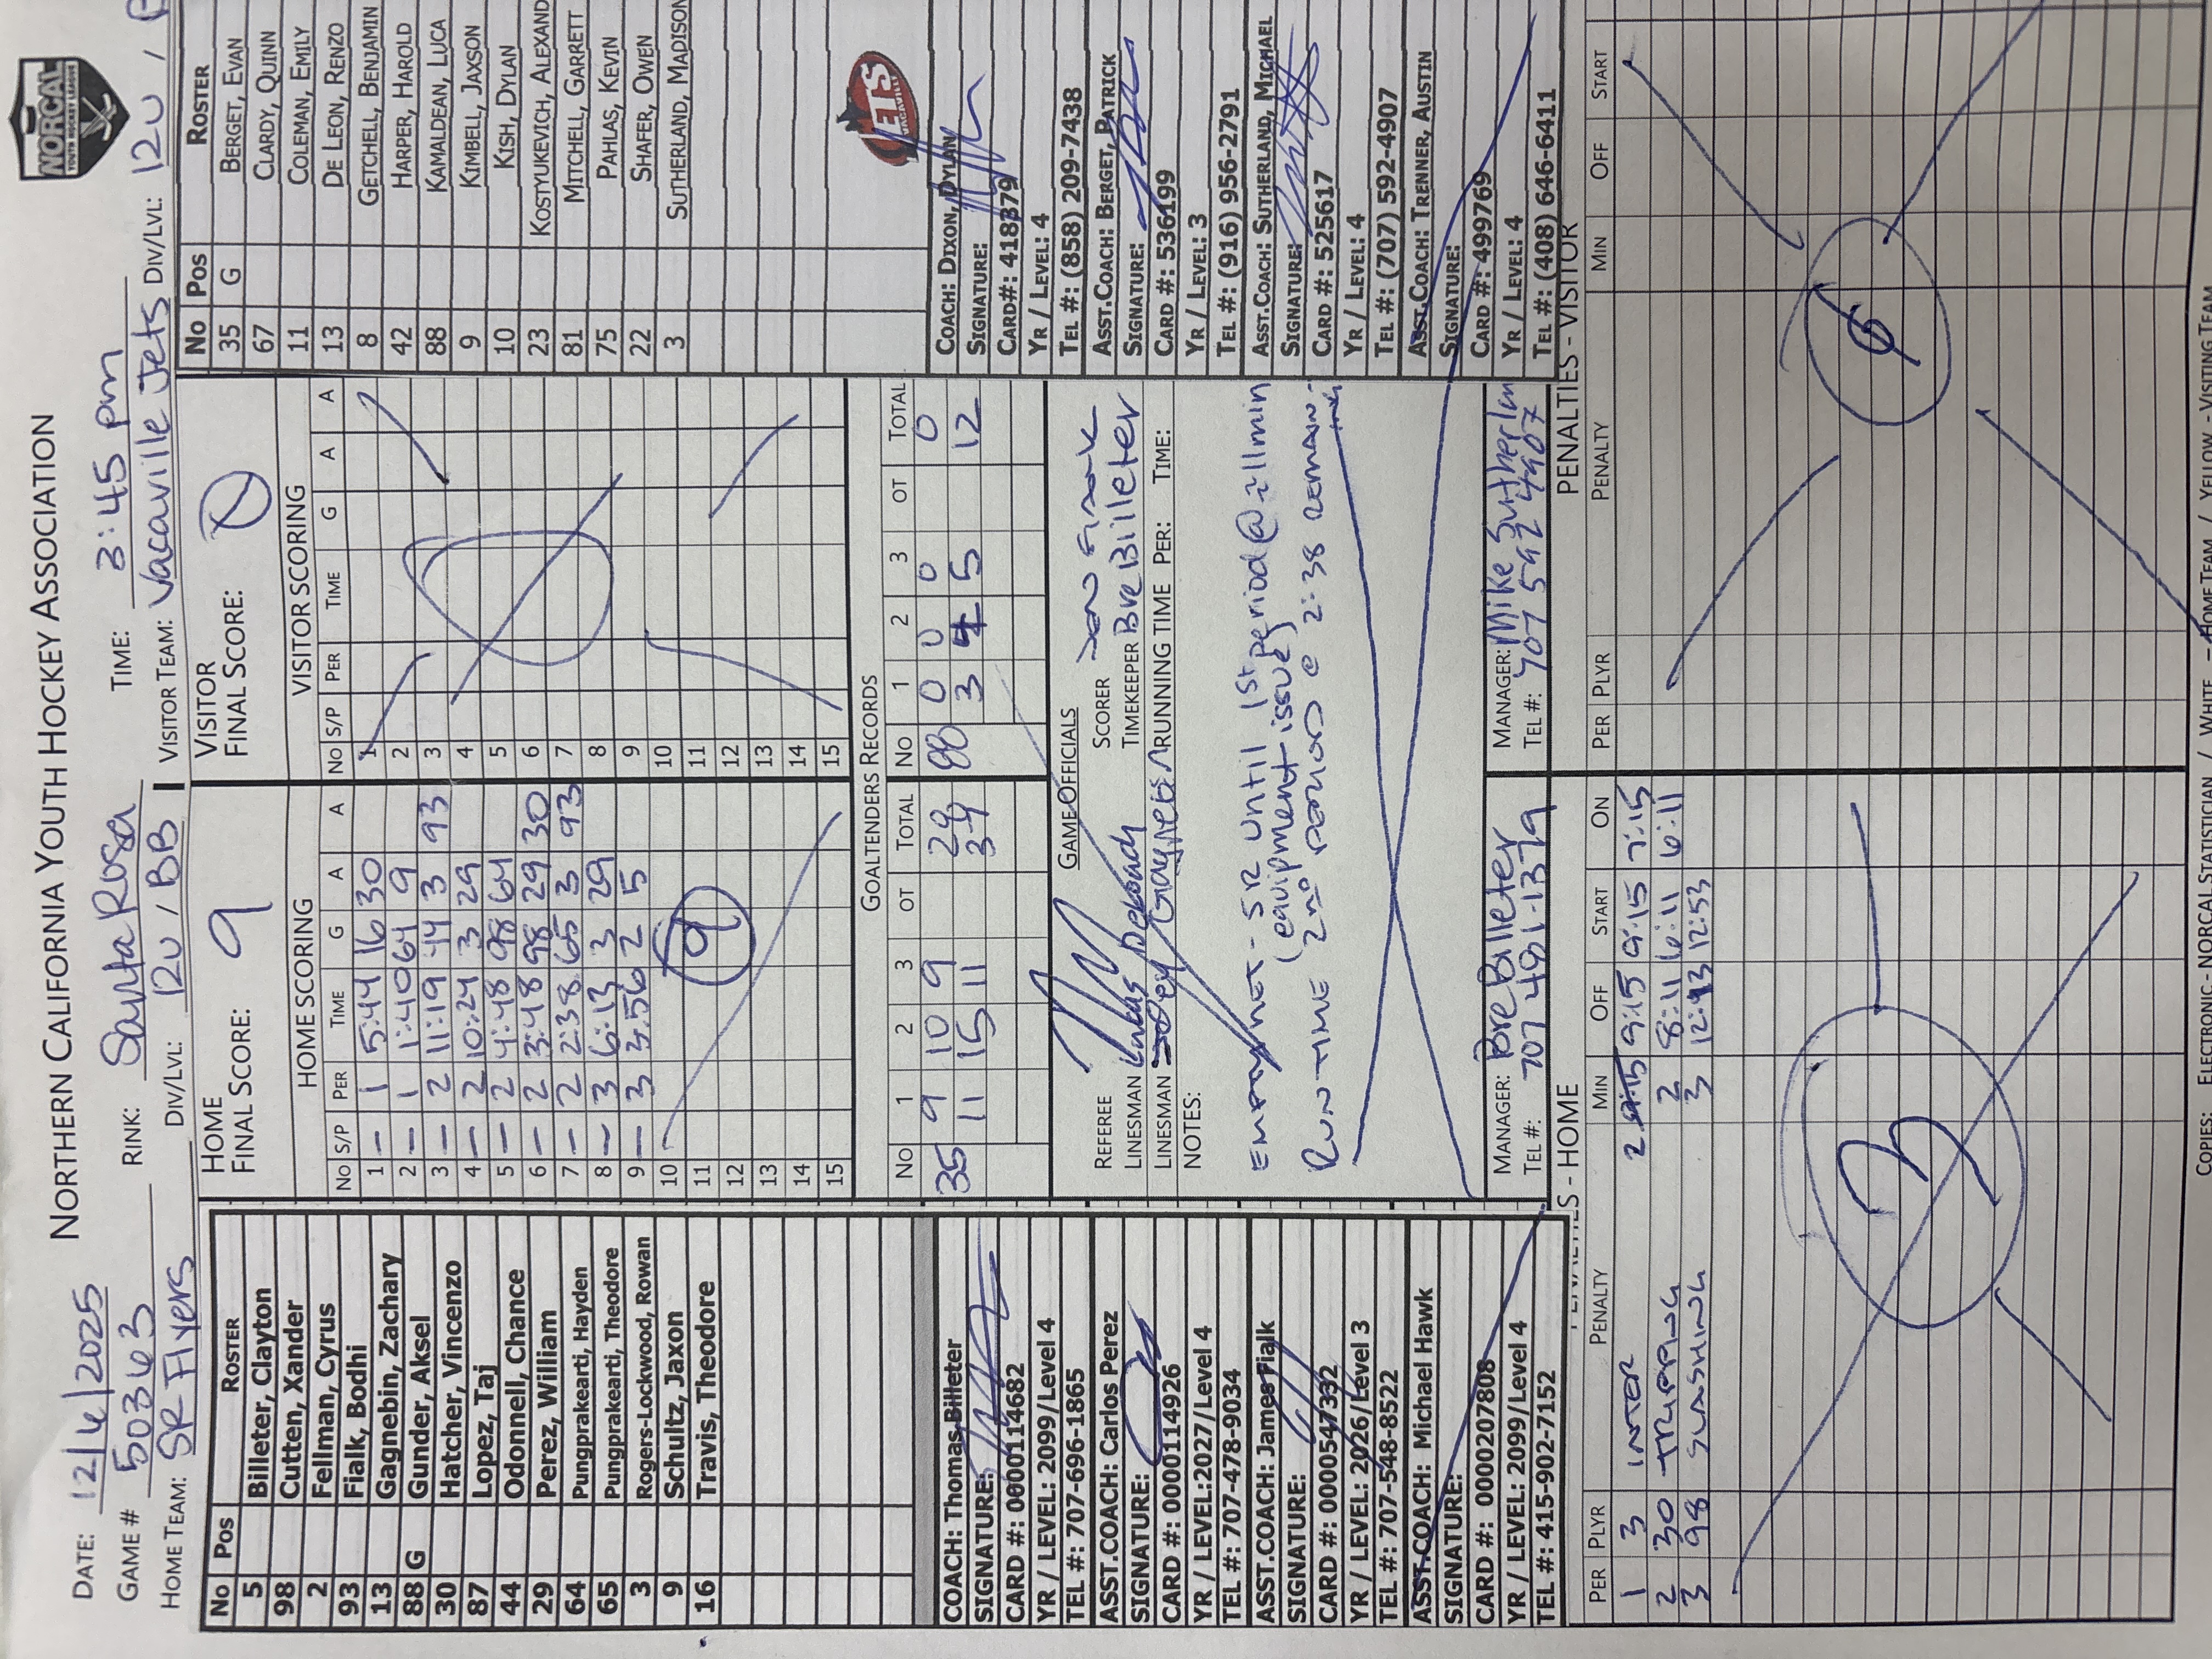 NORTHERN CALIFORNIA YOUTH HOCKEY ASSOCIATION
NORCAL
YOUTH HOCKEY LEAGUE
DATE: 12/6/2025 RINK: Santa Rosa TIME: 3:45 pm
GAME # 50363 DIV/LVL: 12U / BB VISITOR TEAM: Vacaville Jets DIV/LVL: 12U /
HOME TEAM: SR Flyers
No Pos ROSTER
5 Billeter, Clayton
98 Cutten, Xander
2 Fellman, Cyrus
93 Fialk, Bodhi
13 Gagnebin, Zachary
88 G Gunder, Aksel
30 Hatcher, Vincenzo
87 Lopez, Taj
44 Odonnell, Chance
29 Perez, William
64 Pungprakearti, Hayden
65 Pungprakearti, Theodore
3 Rogers-Lockwood, Rowan
9 Schultz, Jaxon
16 Travis, Theodore
COACH: Thomas Billeter
SIGNATURE:
CARD #: 0000114682
YR / LEVEL: 2099/Level 4
TEL #: 707-696-1865
ASST.COACH: Carlos Perez
SIGNATURE:
CARD #: 0000114926
YR / LEVEL:2027/Level 4
TEL #: 707-478-9034
ASST.COACH: James Fialk
SIGNATURE:
CARD #: 0000547332
YR / LEVEL: 2026/Level 3
TEL #: 707-548-8522
ASST.COACH: Michael Hawk
SIGNATURE:
CARD #: 0000207808
YR / LEVEL: 2099/Level 4
TEL #: 415-902-7152
HOME
FINAL SCORE: 9
HOME SCORING
No S/P PER TIME G A A
1 – 1 5:44 16 30
2 – 1 1:40 64 9
3 – 2 11:19 44 3 93
4 – 2 10:24 3 29
5 – 2 4:48 98 64
6 – 2 3:48 98 29 30
7 – 2 2:38 65 3 93
8 – 3 6:13 3 29
9 – 3 3:56 2 5
10
11 9
12
13
14
15
VISITOR
FINAL SCORE: 0
VISITOR SCORING
No S/P PER TIME G A A
1
2
3
4
5
6
7
8
9
10
11
12
13
14
15
GOALTENDERS RECORDS
No 1 2 3 OT TOTAL No 1 2 3 OT TOTAL
35 9 10 9 28 88 0 0 0 0
11 15 11 37 3 4 5 12
GAME OFFICIALS
REFEREE SCORER
LINESMAN Lukas TIMEKEEPER Bre Billeter
LINESMAN RUNNING TIME PER: TIME:
NOTES:
EMPTY NET - SR Until 1st period @ 2:11 min
(equipment issue)
RUN TIME 2ND PERIOD @ 2:38 REMAIN
MANAGER: Bre Billeter
TEL #: 707 481-1379
MANAGER: Mike Sutherlan
TEL #: 707 592 4907
No Pos ROSTER
35 G BERGET, EVAN
67 CLARDY, QUINN
11 COLEMAN, EMILY
13 DE LEON, RENZO
8 GETCHELL, BENJAMIN
42 HARPER, HAROLD
88 KAMALDEAN, LUCA
9 KIMBELL, JAXSON
10 KISH, DYLAN
23 KOSTYUKEVICH, ALEXAND
81 MITCHELL, GARRETT
75 PAHLAS, KEVIN
22 SHAFER, OWEN
3 SUTHERLAND, MADISON
JETS
VACAVILLE
COACH: DIXON, DYLAN
SIGNATURE:
CARD#: 418379
YR / LEVEL: 4
TEL #: (858) 209-7438
ASST.COACH: BERGET, PATRICK
SIGNATURE:
CARD #: 536199
YR / LEVEL: 3
TEL #: (916) 956-2791
ASST.COACH: SUTHERLAND, MICHAEL
SIGNATURE:
CARD #: 525617
YR / LEVEL: 4
TEL #: (707) 592-4907
ASST.COACH: TRENNER, AUSTIN
SIGNATURE:
CARD #: 499769
YR / LEVEL: 4
TEL #: (408) 646-6411
PENALTIES - HOME
PER PLYR PENALTY MIN OFF START ON
1 3 INTER 2 9:15 9:15 7:15
2 30 TRIPPING 2 8:11 6:11 6:11
3 98 SLASHING 3 12:53
3
PENALTIES - VISITOR
PER PLYR PENALTY MIN OFF START
COPIES: ELECTRONIC - NORCAL STATISTICIAN / WHITE – HOME TEAM / YELLOW - VISITING TEAM